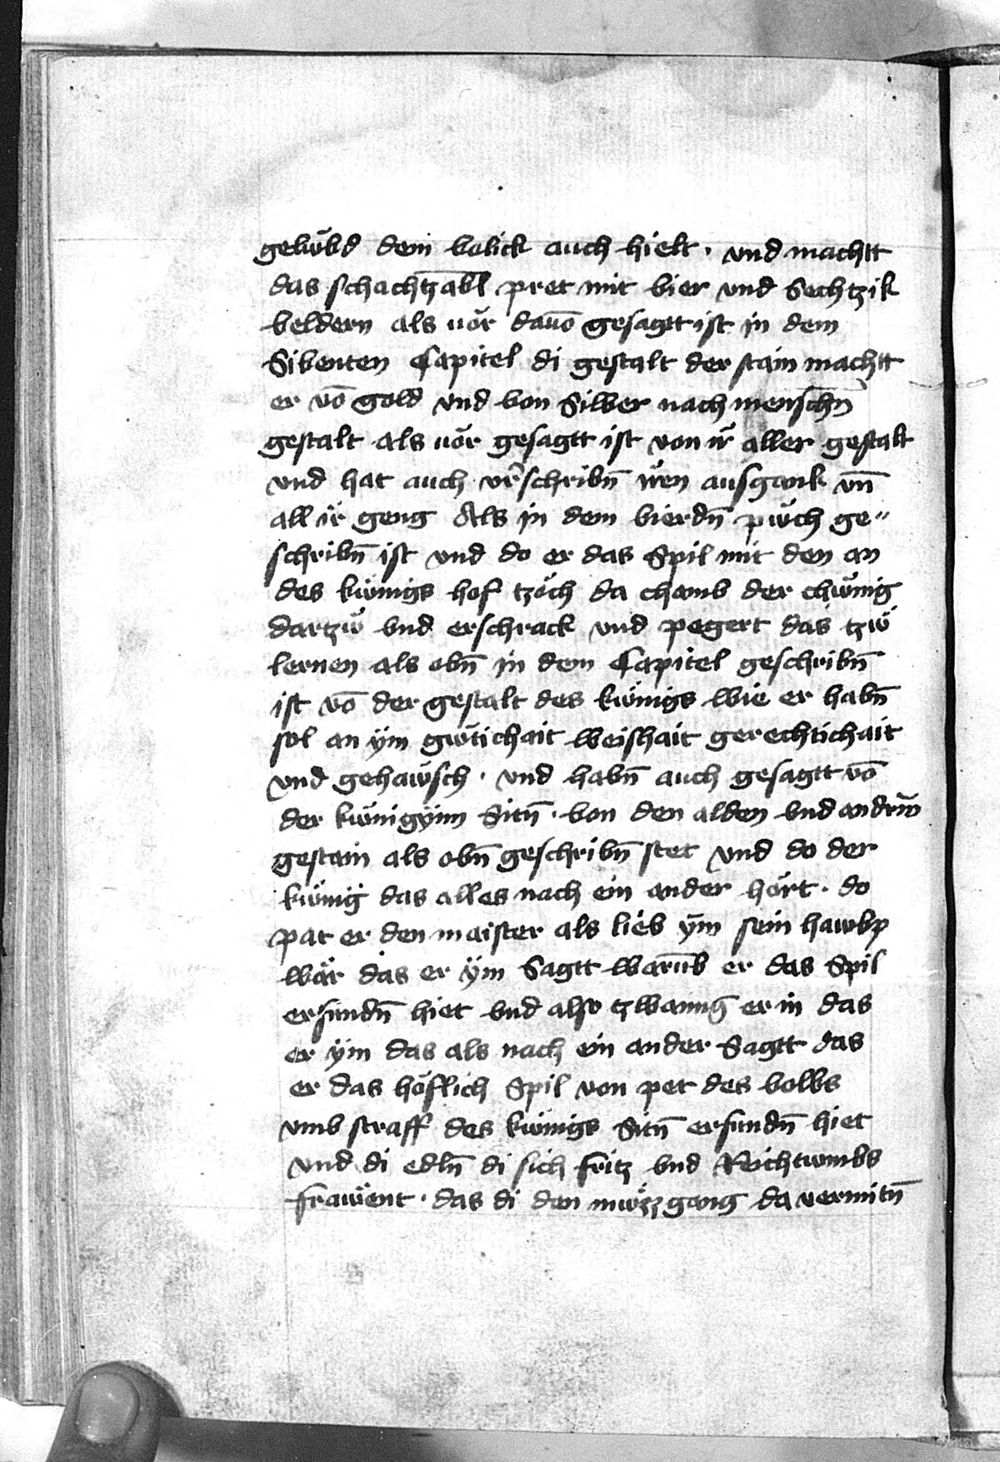 gelübd dem volick auch hielt · vnd machtt
das schachtzabl pret mit vier vnd Sechtzik
veldern als uör dauō gesagtt ist in dem
Sibenten Capitel di gestalt der stain machtt
er vō gold vnd von Silber nach menschn̄
gestalt als uör gesagtt ist von ir̄ aller gestalt
vnd hat auch vr̄schribn̄ iren ausgank vn̄
all ir geng Als in dem vierdn̄ püch ge〃
schribn̄ ist vnd do er das Spil mit den an
des künigs hof tzöch da chamb der chünig
dartzü vnd erschrack vnd pegert das tzü
lernen als obn̄ in dem Capitel geschribn̄
ist vō der gestalt des künigs wie er habn̄
sol an ÿm gütichait weishait gerechtichait
vnd gehaẅsch · vnd habn̄ auch gesagtt vō
der künigÿnn Sitn̄ · von den alden vnd andrn̄
gestain als obn̄ geschribn̄ stet vnd do der
künig das alles nach ein ander hört · do
pat er den maister als lieb ÿm sein hawbp
wär das er ÿm Sagtt warūb er das Spil
erfundn̄ hiet vnd also tzwanng er in das
er ÿm das als nach ein ander Sagtt das
er das höflich Spil von pet des volks
vmb straff des künigs Sitn̄ erfundn̄ hiet
vnd di edln̄ di sich fritz vnd Reichtumbs
fräwent · das di den müzzgang da vermitn̄